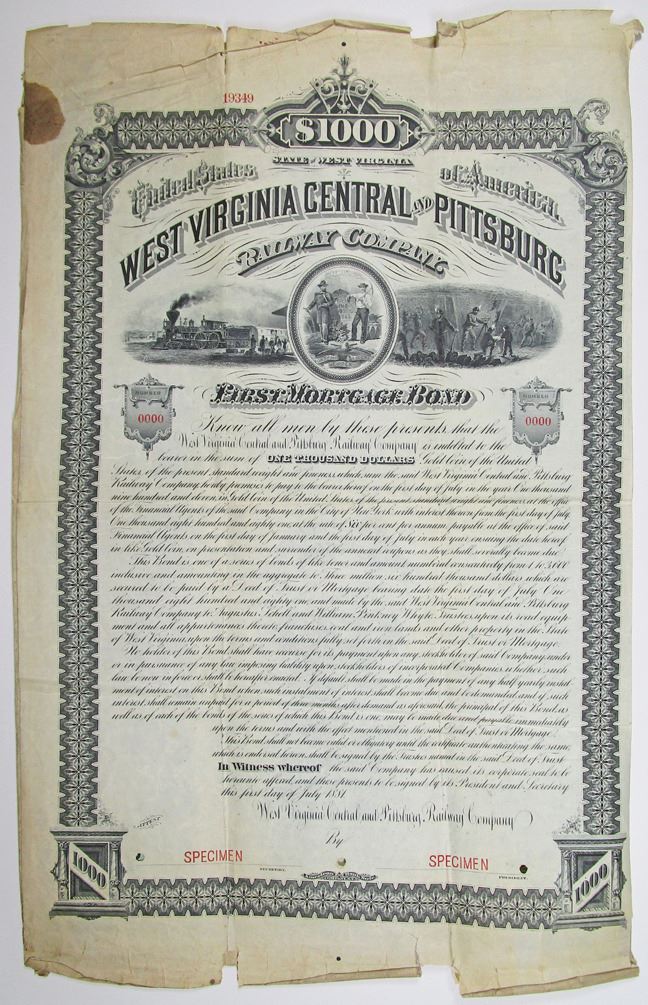 19349
$1000
STATE OF WEST VIRGINIA
United States of America
WEST VIRGINIA CENTRAL AND PITTSBURG
RAILWAY COMPANY
FIRST MORTGAGE BOND
NUMBER NUMBER
0000 0000
Know all men by these presents, that the
West Virginia Central and Pittsburg Railway Company is indebted to the
bearer in the sum of ONE THOUSAND DOLLARS Gold Coin of the United
States of the present standard weight and fineness, which sum the said West Virginia Central and Pittsburg
Railway Company hereby promises to pay to the bearer hereof on the first day of July in the year One thousand
nine hundred and eleven, in Gold Coin of the United States of the present standard weight and fineness at the office
of the Financial Agents of the said Company in the City of New York with interest thereon from the first day of July
One thousand eight hundred and eighty one at the rate of Six per cent per annum, payable at the office of said
Financial Agents on the first day of January and the first day of July in each year ensuing the date hereof
in like Gold Coin, on presentation and surrender of the annexed coupons as they shall severally become due.
This Bond is one of a series of bonds of like tenor and amount numbered consecutively from 1 to
inclusive and amounting in the aggregate to three million six hundred thousand dollars which are
secured to be paid by a Deed of Trust or Mortgage bearing date the first day of July One
thousand eight hundred and eighty one and made by the said West Virginia Central and Pittsburg
Railway Company to Augustus Schell and William Pinkney Whyte, Trustees, upon its road equip-
ment and all appurtenances thereto franchises coal and iron lands and other property in the State
of West Virginia, upon the terms and conditions fully set forth in the said Deed of Trust or Mortgage.
No holder of this Bond shall have recourse for its payment upon any stockholder of said Company, under
or in pursuance of any law imposing liability upon stockholders of incorporated Companies, whether such
law be now in force or shall be hereafter enacted. If default shall be made in the payment of any half yearly instal-
ment of interest on this Bond when such instalment of interest shall become due and be demanded and if such
interest shall remain unpaid for a period of three months after demand as aforesaid, the principal of this Bond, as
well as of each of the bonds of the series of which this Bond is one, may be made due and payable immediately
upon the terms and with the effect mentioned in the said Deed of Trust or Mortgage.
This Bond shall not become valid or obligatory until the certificate authenticating the same
which is endorsed hereon, shall be signed by the Trustees named in the said Deed of Trust.
In Witness whereof the said Company has caused its corporate seal to be
hereunto affixed, and these presents to be signed by its President and Secretary
this first day of July 1881.
West Virginia Central and Pittsburg Railway Company
ATTEST
By
SPECIMEN SPECIMEN
SECRETARY. PRESIDENT.
1000 1000